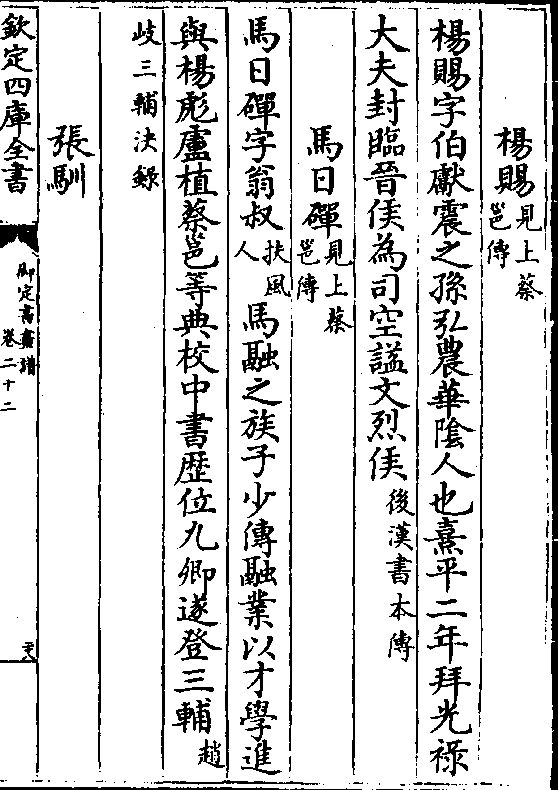 楊賜見上蔡邕傳
楊賜字伯獻震之孫弘農華陰人也熹平二年拜光祿
大夫封臨晉侯為司空諡文烈侯後漢書本傳
馬日磾見上蔡邕傳
馬日磾字翁叔扶風人馬融之族子少傳融業以才學進
與楊彪盧植蔡邕等典校中書歴位九卿遂登三輔趙
岐三輔決錄
張馴
欽定四庫全書
御定書畫譜
卷二十二